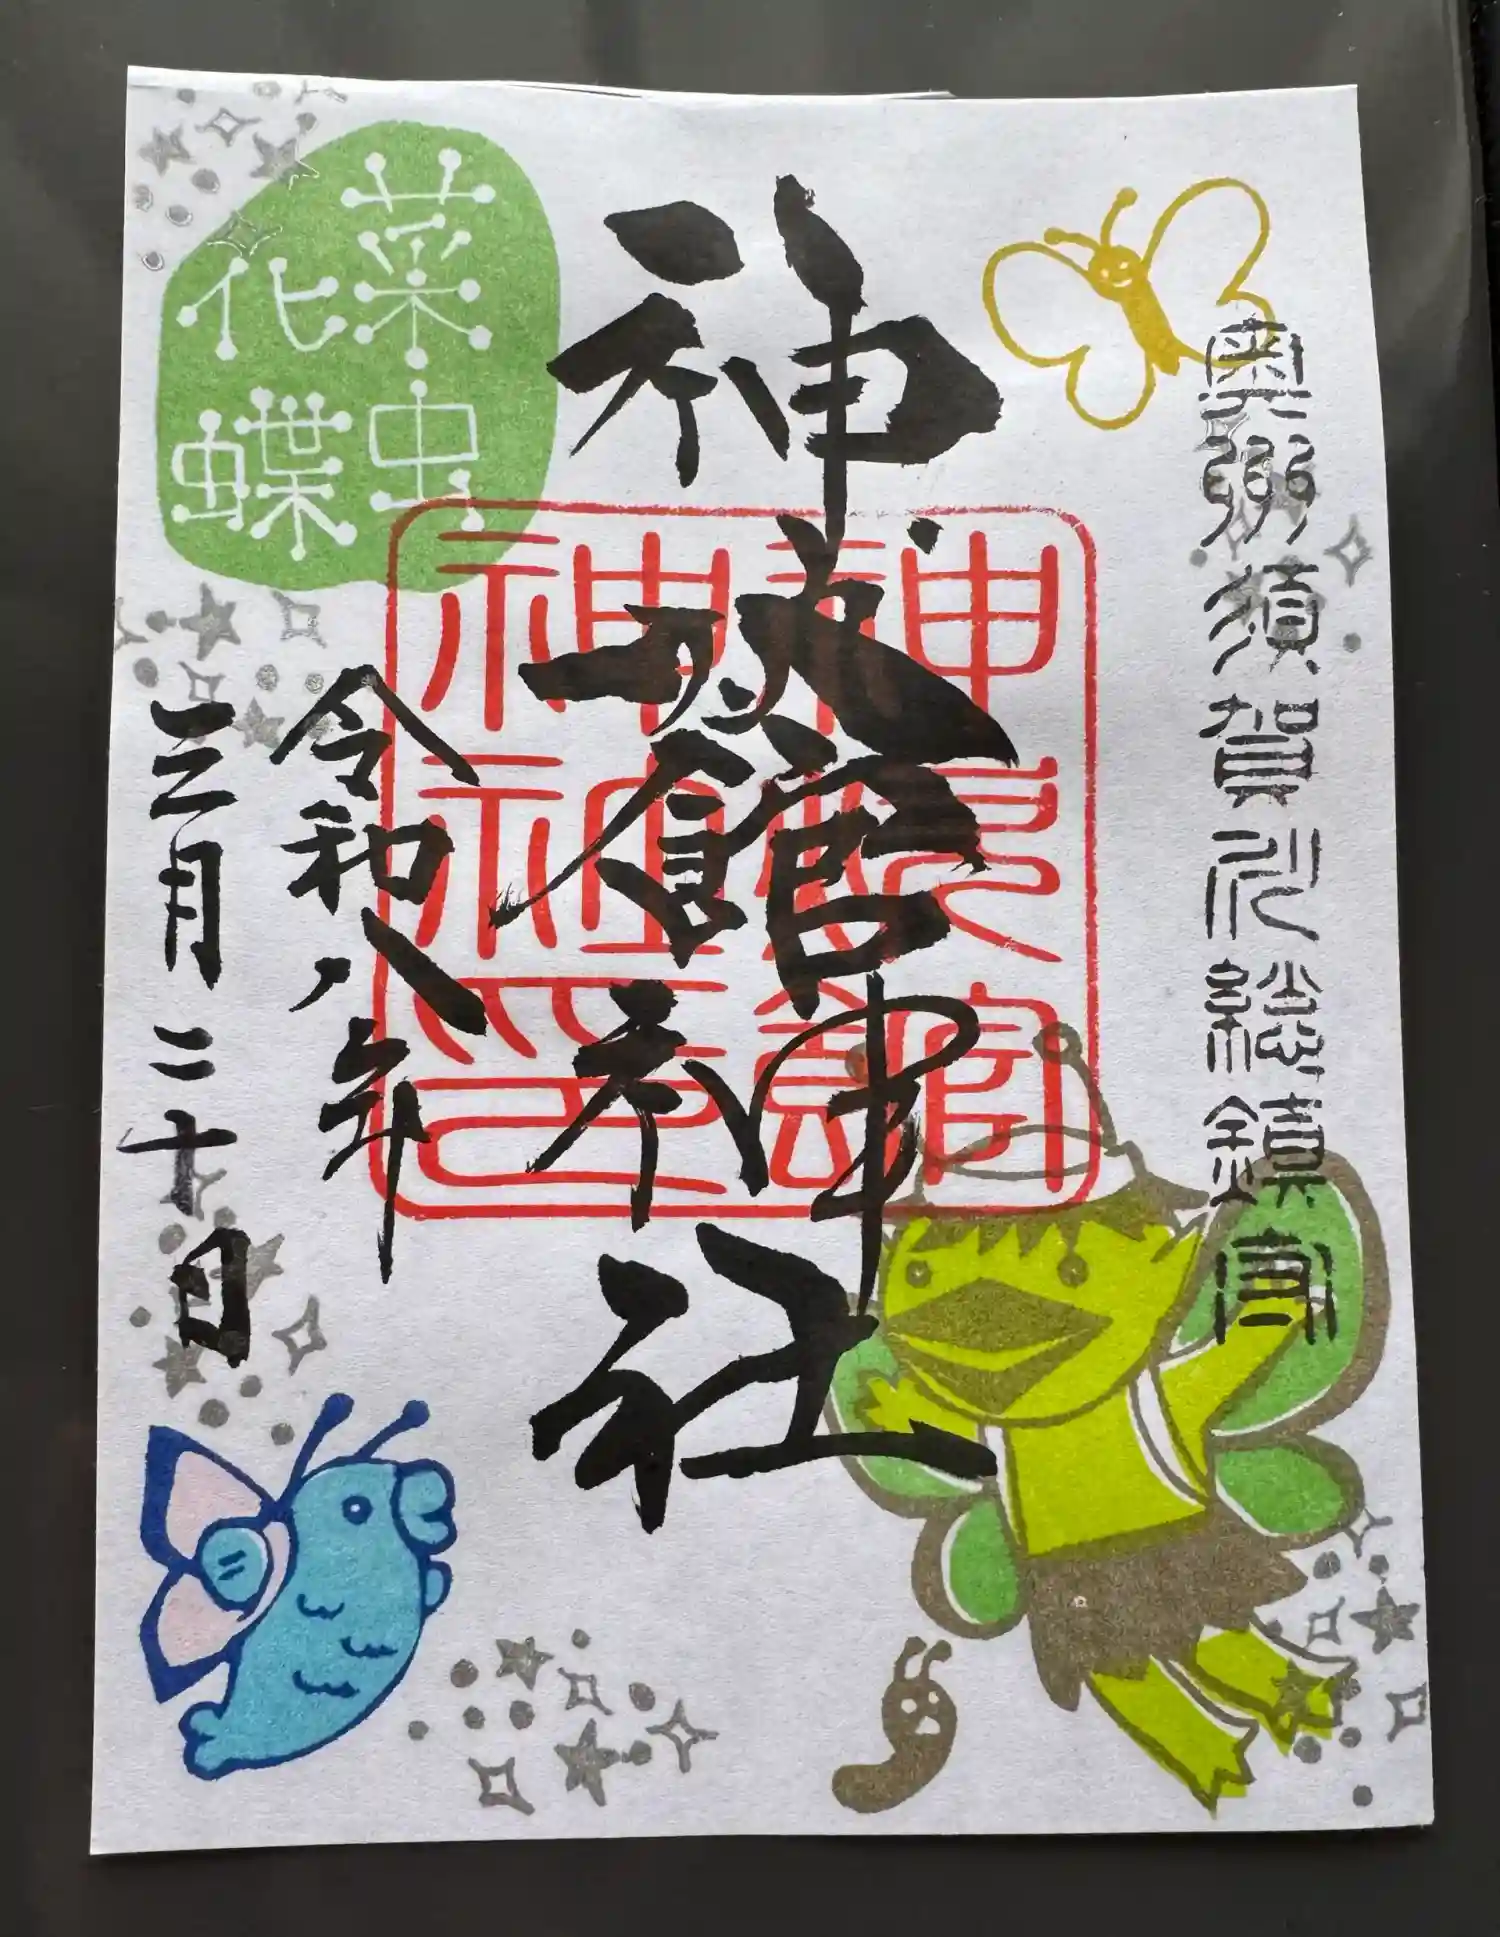 奥州須賀川総鎮守
神炊館神社
神炊館
神社印
菜虫
化蝶
令和八年
三月二十日